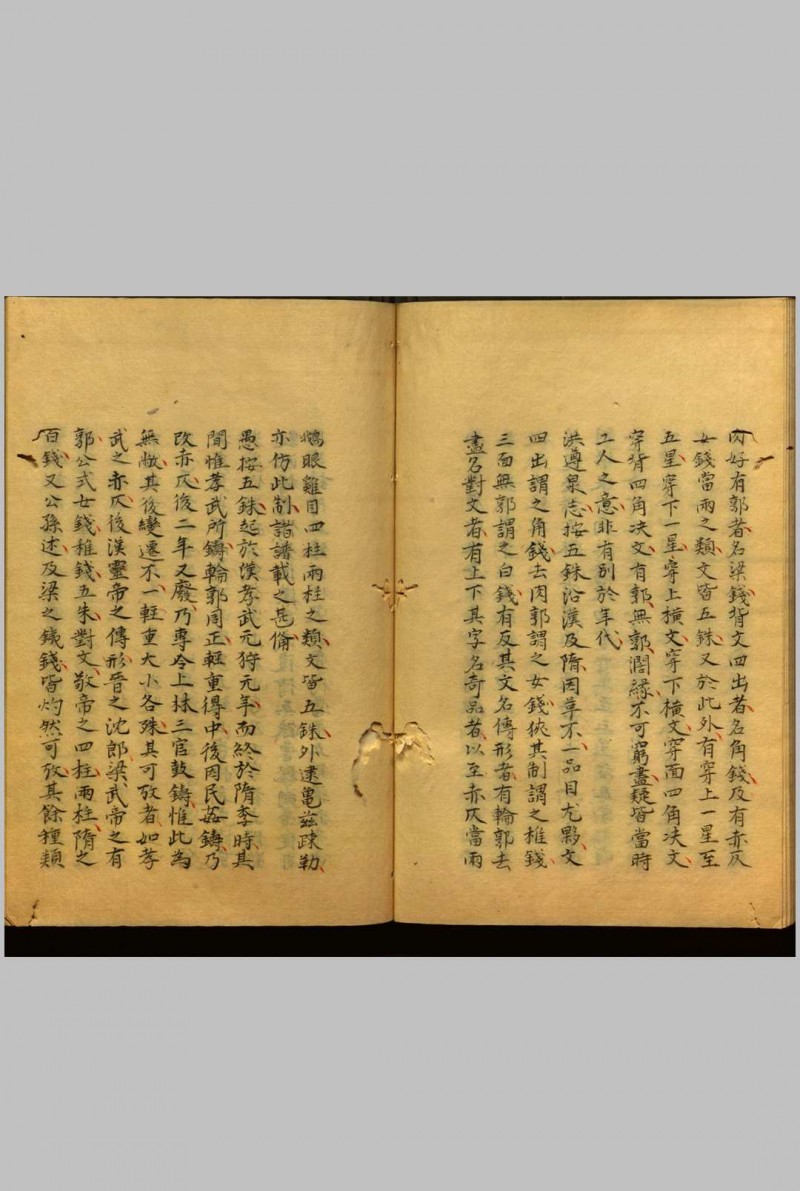 內好有郭者名梁錢背文四出者名角錢及有赤仄
女錢當兩之類文皆五銖又於此外有穿上一星至
五星穿下一星穿上橫文穿下橫文穿面四角决文
穿背四角决文有郭無郭濶縁不可窮盡疑皆當時
工人之意非有别於年代
洪遵泉志按五銖沿漢及隋因革不一品目尤夥文
四出謂之角錢去內郭謂之女錢狹其制謂之稚錢
三面無郭謂之白錢有反其文名傳形者有輪郭去
盡名對文者有上下其字名奇品者以至赤仄當兩
鵝眼雞目四柱兩柱之類文皆五銖外逮龜茲疎勒
亦仿此制諸譜載之甚俻
愚按五銖起於漢孝武元狩元年而終於隋季時其
間惟孝武所鑄輪郭周正輕重得中後因民姦鑄乃
改赤仄後二年又廢乃專令上林三官鼓鑄惟此為
無敝其後變遷不一輕重大小各殊其可攷者如孝
武之赤仄後漢靈帝之傳形晉之沈郎梁武帝之有
郭公式女錢稚錢五朱對文敬帝之四柱兩柱隋之
百錢又公孫述及梁之鐵錢皆灼然可攷其餘種類